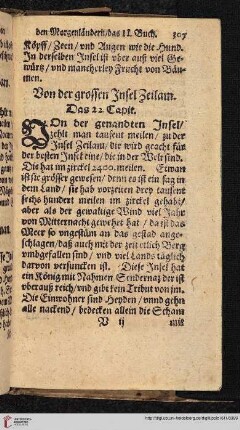 den Morgenländern/ das II. Buch. 307
Köpff/ Zeen/ vnd Augen wie die Hund.
In derselben Insel ist vber auß viel Ge-
würtz/ vnd mancherley Frucht von Bäu-
men.
Von der grossen Insel Zeilam.
Das 22 Capit.
VOn der genandten Insel/
zehlt man tausent meilen/ zu der
Insel Zeilam/ die wird geacht für
der besten Insel eine/ die in der Welt sind.
Die hat im zirckel 2400. meilen. Etwan
ist sie grösser gewesen/ denn es ist ein sag in
dem Land/ sie hab vorzeiten drey tausent
sechs hundert meilen im zirckel gehabt/
aber als der gewaltige Wind viel Jahr
von Mitternacht gewehet hat/ da ist das
Meer so vngestüm an das gestad ange-
schlagen/ daß auch mit der zeit etlich Berg
vmbgefallen sind/ vnd viel Lands täglich
darvon versuncken ist. Diese Insel hat
ein König mit Nahmen Sendernaz der ist
vberauß reich/ vnd gibt kein Tribut von jm.
Die Einwohner sind Heyden/ vnnd gehn
alle nackend/ bedecken allein die Scham
V ij mit